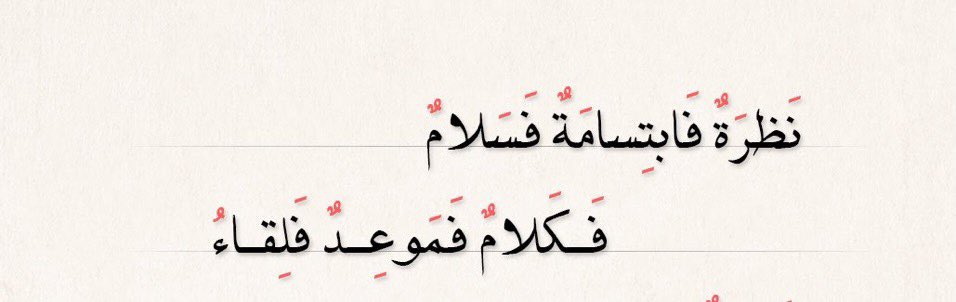 نَظرَةٌ فَابتِسامَةٌ فَسَلامٌ
فَكَلامٌ فَمَوعِدٌ فَلِقاءُ